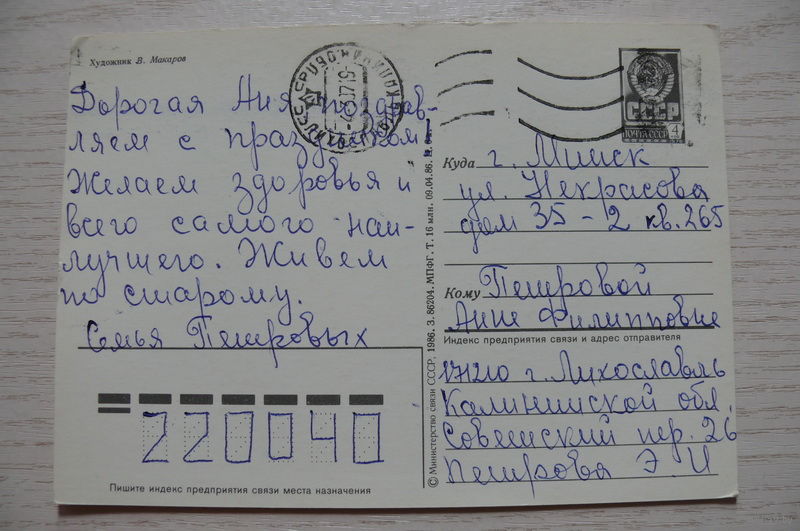 Художник В. Макаров
Дорогая Аня поздрав-
ляем с праздником
Желаем здоровья и
всего самого наи-
лучшего. Живем
по старому.
Семья Петровых
220040
Пишите индекс предприятия связи места назначения
© Министерство связи СССР, 1986. З. 86204. МПФГ. Т. 16 млн. 09.04.86. Ц. 6 к.
СССР
ПОЧТА СССР 4
Куда г. Минск
ул. Некрасова
дом 35 - 2 кв. 265
Кому Петровой
Анне Филипповне
Индекс предприятия связи и адрес отправителя
171210 г. Лихославль
Калининской обл.
Советский пер. 26
Петрова Э. И